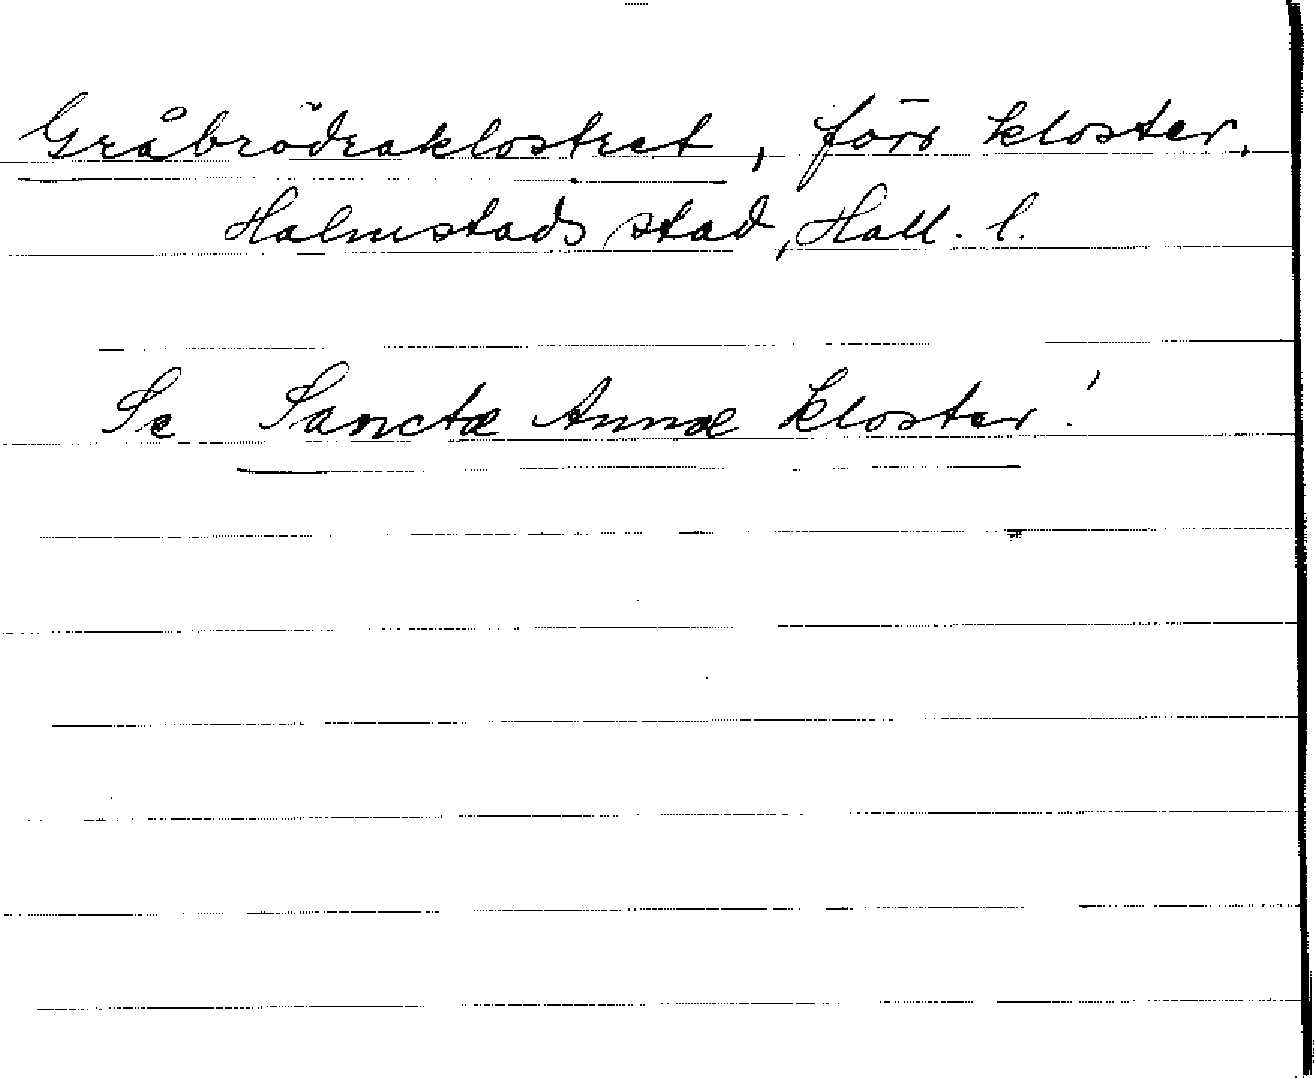 Gråbrödraklostret, förs kloster.
Halmstads stad, Hall. l.
Se Sanctæ Annæ kloster!